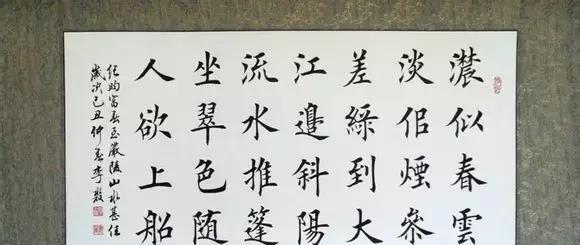 濃似春雲
淡佀煙參
差綠到大
江邊斜陽
流水推篷
坐翠色随
人欲上船
紀昀富春至嚴陵山水甚佳
歲次己丑仲春李